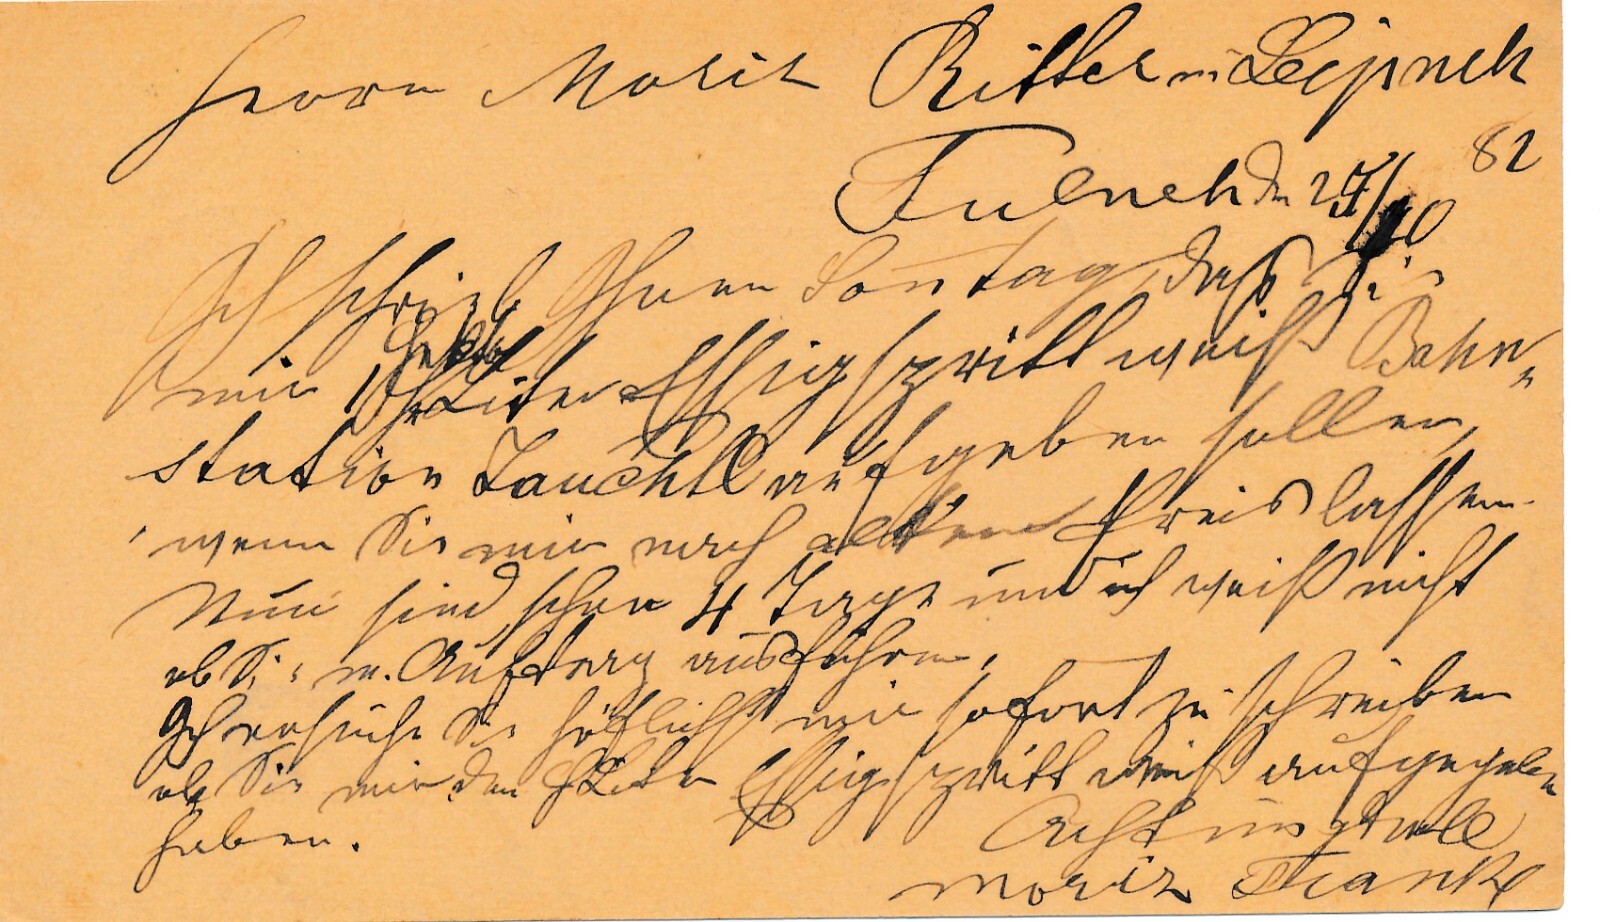 Herrn Moritz Ritter in Leipnik
Fulnek den 27/10 82
Ich schrieb Ihnen Sonntag, daß Sie
mir 1 Hectoliter Essigspritt weiß Bahn„
station Zauchtl aufgeben sollen,
wenn Sie mir nach alten Preis lassen.
Nun sind schon 4 Tage und ich weiß nicht
ob Sie m. Auftrag ausführen.
Ich ersuche Sie höflichst mir sofort zu schreiben
ob Sie mir den Essigspritt weiß aufgegeben
haben. Achtungsvoll
Moritz Frank